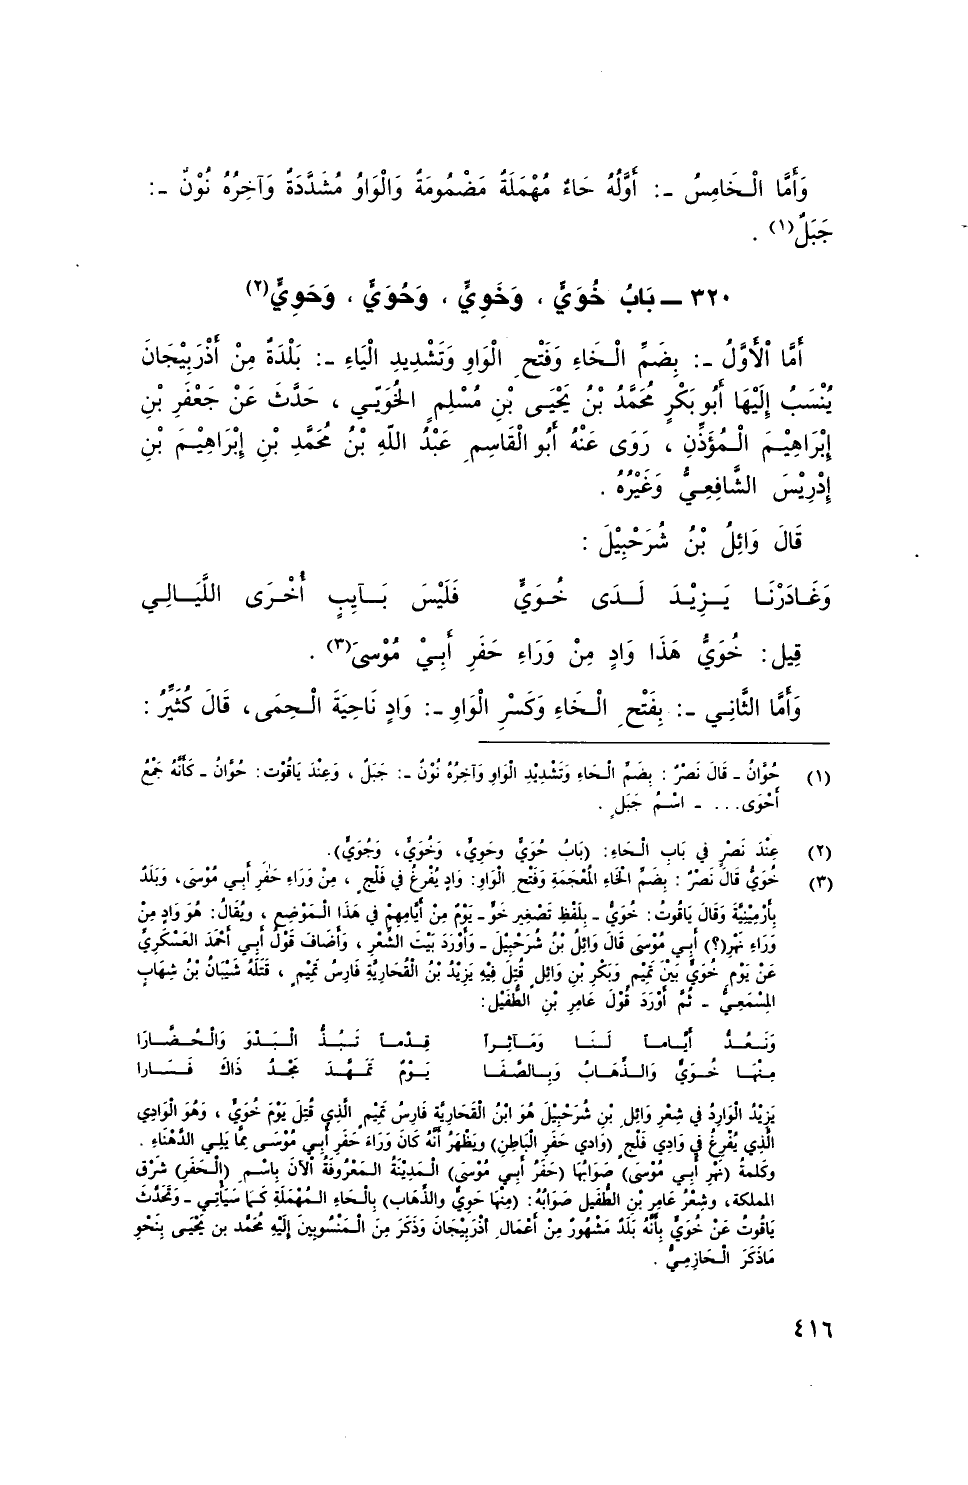 وَأَمَّا الْخَامِسُ ـ: أَوَّلُهُ حَاءٌ مُهْمَلَةٌ مَضْمُومَةٌ وَالْوَاوُ مُشَدَّدَةٌ وَآخِرُهُ نُوْنٌ ـ:
جَبَلٌ(١) .
٣٢٠ ـ بَابُ خُوَيٍّ ، وَخَوِيٍّ ، وَحُوَيٍّ ، وَحَوِيٍّ(٢)
أَمَّا الْأَوَّلُ ـ: بِضَمِّ الْخَاءِ وَفَتْحِ الْوَاوِ وَتَشْدِيدِ الْيَاءِ ـ: بَلْدَةٌ مِنْ أَذْرَبِيْجَانَ
يُنْسَبُ إِلَيْهَا أَبُو بَكْرٍ مُحَمَّدُ بْنُ يَحْيَى بْنِ مُسْلِمٍ الخُوَيّي ، حَدَّثَ عَنْ جَعْفَرِ بْنِ
إِبْرَاهِيْمَ الْمُؤَذِّنِ ، رَوَى عَنْهُ أَبُو الْقَاسِمِ عَبْدُ اللهِ بْنُ مُحَمَّدِ بْنِ إِبْرَاهِيْمَ بْنِ
إِدْرِيْسَ الشَّافِعِيُّ وَغَيْرُهُ .
قَالَ وَائِلُ بْنُ شُرَحْبِيْلَ :
وَغَادَرْنَا يَزِيْدَ لَدَى خُوَيٍّ فَلَيْسَ بَآيِبٍ أُخْرَى اللَّيَالِي
قِيلَ: خُوَيُّ هَذَا وَادٍ مِنْ وَرَاءِ حَفَرِ أَبِيْ مُوْسَىٰ(٣) .
وَأَمَّا الثَّانِي ـ: بِفَتْحِ الْخَاءِ وَكَسْرِ الْوَاوِ ـ: وَادٍ نَاحِيَةَ الْحِمَى، قَالَ كُثَيِّرُ :
(١) حُوَّانُ ـ قَالَ نَصْرٌ : بِضَمِّ الْحَاءِ وَتَشْدِيْدِ الْوَاوِ وَآخِرُهُ نُوْنٌ ـ: جَبَلٌ ، وَعِنْدَ يَاقُوْت: حُوَّانُ ـ كَأَنَّهُ جَمْعُ
أَحْوَى... ـ اسْمُ جَبَلٍ .
(٢) عِنْدَ نَصْرٍ فِي بَابِ الْحَاءِ: (بَابُ حُوَيٍّ وحَوِيٍّ، وَخُوَيٍّ، وَجُوَيٍّ).
(٣) خُوَيُّ قَالَ نَصْرٌ : بِضَمِّ الخَاءِ المُعْجَمَةِ وَفَتْحِ الْوَاوِ: وَادٍ يُفْرِغُ فِي فَلْجٍ ، مِنْ وَرَاءِ حَفَرِ أَبِي مُوْسَىٰ، وَبَلَدٌ
بِأَرْمِيْنِيَّةَ وَقَالَ يَاقُوتُ: خُوَيٌّ ـ بِلَفْظِ تَصْغِيرِ خَوٍّ ـ يَوْمٌ مِنْ أَيَّامِهِمْ فِي هَذَا الْمَوْضِعِ ، وَيُقَالُ: هُوَ وَادٍ مِنْ
وَرَاءِ نَهْرِ(؟) أَبِي مُوْسَى قَالَ وَائِلُ بْنُ شُرَحْبِيْلَ ـ وَأَوْرَدَ بَيْتَ الشِّعْرِ ، وَأَضَافَ قَوْلَ أَبِي أَحْمَدَ الْعَسْكَرِيِّ
عَنْ يَوْمِ خُوَيٍّ بَيْنَ تَمِيْمٍ وَبَكْرِ بْنِ وَائِلٍ قُتِلَ فِيْهِ يَزِيْدُ بْنُ الْقُحَارِيَّةِ فَارِسُ تَمِيْمٍ ، قَتَلَهُ شَيْبَانُ بْنُ شِهَابٍ
المِسْمَعِيُّ ـ ثُمَّ أَوْرَدَ قَوْلَ عَامِرِ بْنِ الطُّفَيْل:
وَنَعُدُّ أَيَّاماً لَنَا وَمَآثِراً قِدْماً تَبُذُّ الْبَدْوَ وَالْحُضَّارَا
مِنْهَا خُوَيٌّ وَالذِّهَابُ وَبِالصَّفَا يَوْمٌ تَمَهَّدَ مَجْدُ ذَاكَ فَسَارا
يَزِيْدُ الْوَارِدُ فِي شِعْرِ وَائِلِ بْنِ شُرَحْبِيْلَ هُوَ ابْنُ الْقَحَارِيَّةِ فَارِسُ تَمِيْمٍ الَّذِي قُتِلَ يَوْمَ خُوَيٍّ ، وَهُوَ الْوَادِي
الَّذِي يُفْرِغُ فِي وَادِي فَلْجٍ (وَادي حَفَرِ الْبَاطِنِ) ويَظْهَرُ أَنَّهُ كَانَ وَرَاءَ حَفَرِ أَبِي مُوْسَى مِمَّا يَلِي الدَّهْنَاءِ .
وكَلمةُ (نَهْرِ أَبِي مُوْسَى) صَوَابُهَا (حَفَرُ أَبِي مُوْسَى) الْمَدِيْنَةُ الْمَعْرُوفَةُ الآنَ بِاسْمِ (الْحَفَرِ) شَرْقَ
المملكة، وشِعْرُ عَامِرِ بْنِ الطُّفَيل صَوَابُهُ: (مِنْهَا حَوِيٌّ والذِّهَاب) بِالْحَاءِ الْمُهْمَلَةِ كَمَا سَيَأْتِي ـ وَتَحَدَّثَ
يَاقُوتُ عَنْ خُوَيٍّ بِأَنَّهُ بَلَدٌ مَشْهُورٌ مِنْ أَعْمَالِ أَذْرَبِيْجَانَ وَذَكَرَ مِنَ الْمَنْسُوبِينَ إِلَيْهِ مُحَمَّد بن يَحْيَى بِنَحْوِ
مَاذَكَرَ الْحَازِمِيُّ .
٤١٦